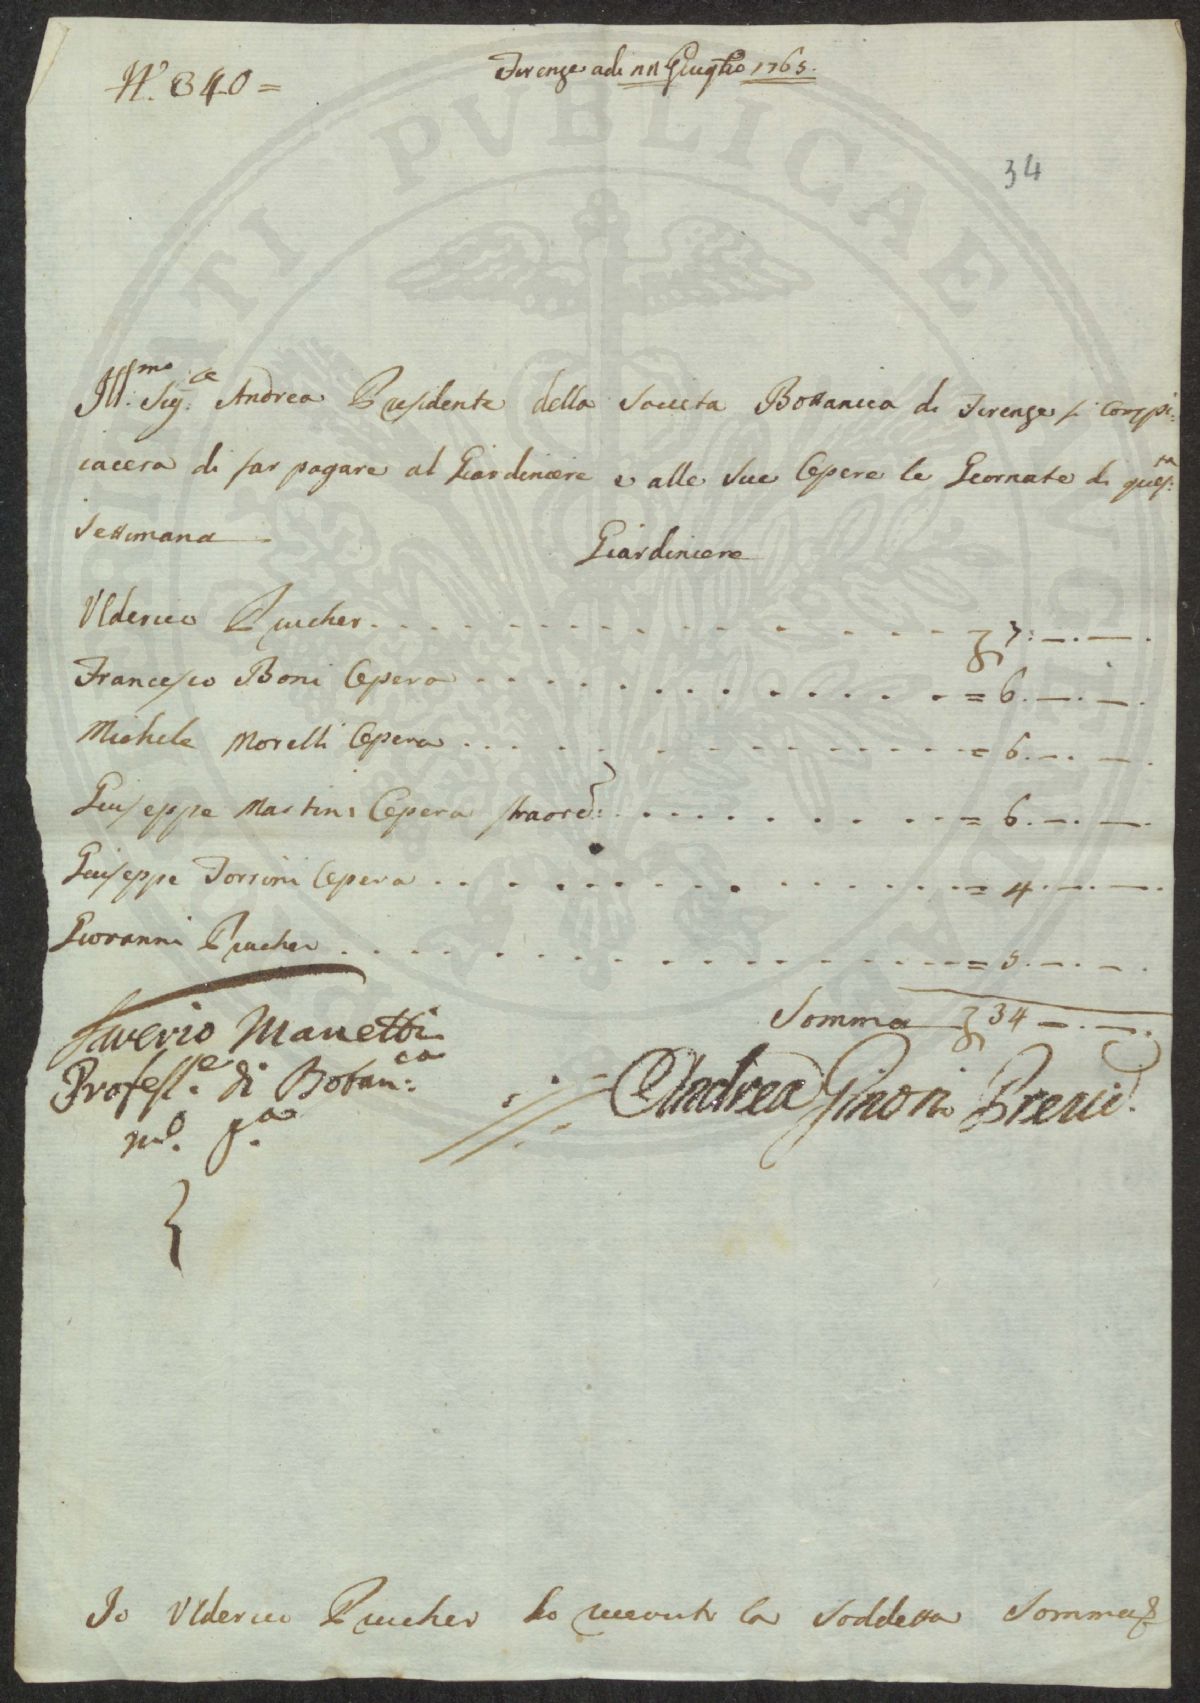 N.º 340 =
Firenze adi 11 Giuglio 1765.
34
Ill.mo Sig.re Andrea Presidente della Società Bottanica di Firenze si Compi:
iacera di far pagare al Giardiniere e alle Sue Opere le Giornate di ques:ta
Settimana
Giardiniere
Ulderico Prucher 7:
Francesco Boni Opera = 6.
Michele Morelli Opera = 6.
Giuseppe Martini Opera straord: = 6.
Giuseppe Torrini Opera = 4.
Giovanni Prucher = 5.
Somma 34
Saverio Manetti
Profess.e di Botan:ca
m.o p.a
Andrea Ginori Presid.
Io Ulderico Prucher ho riceuto la Soddetta Somma
PUBLICAE